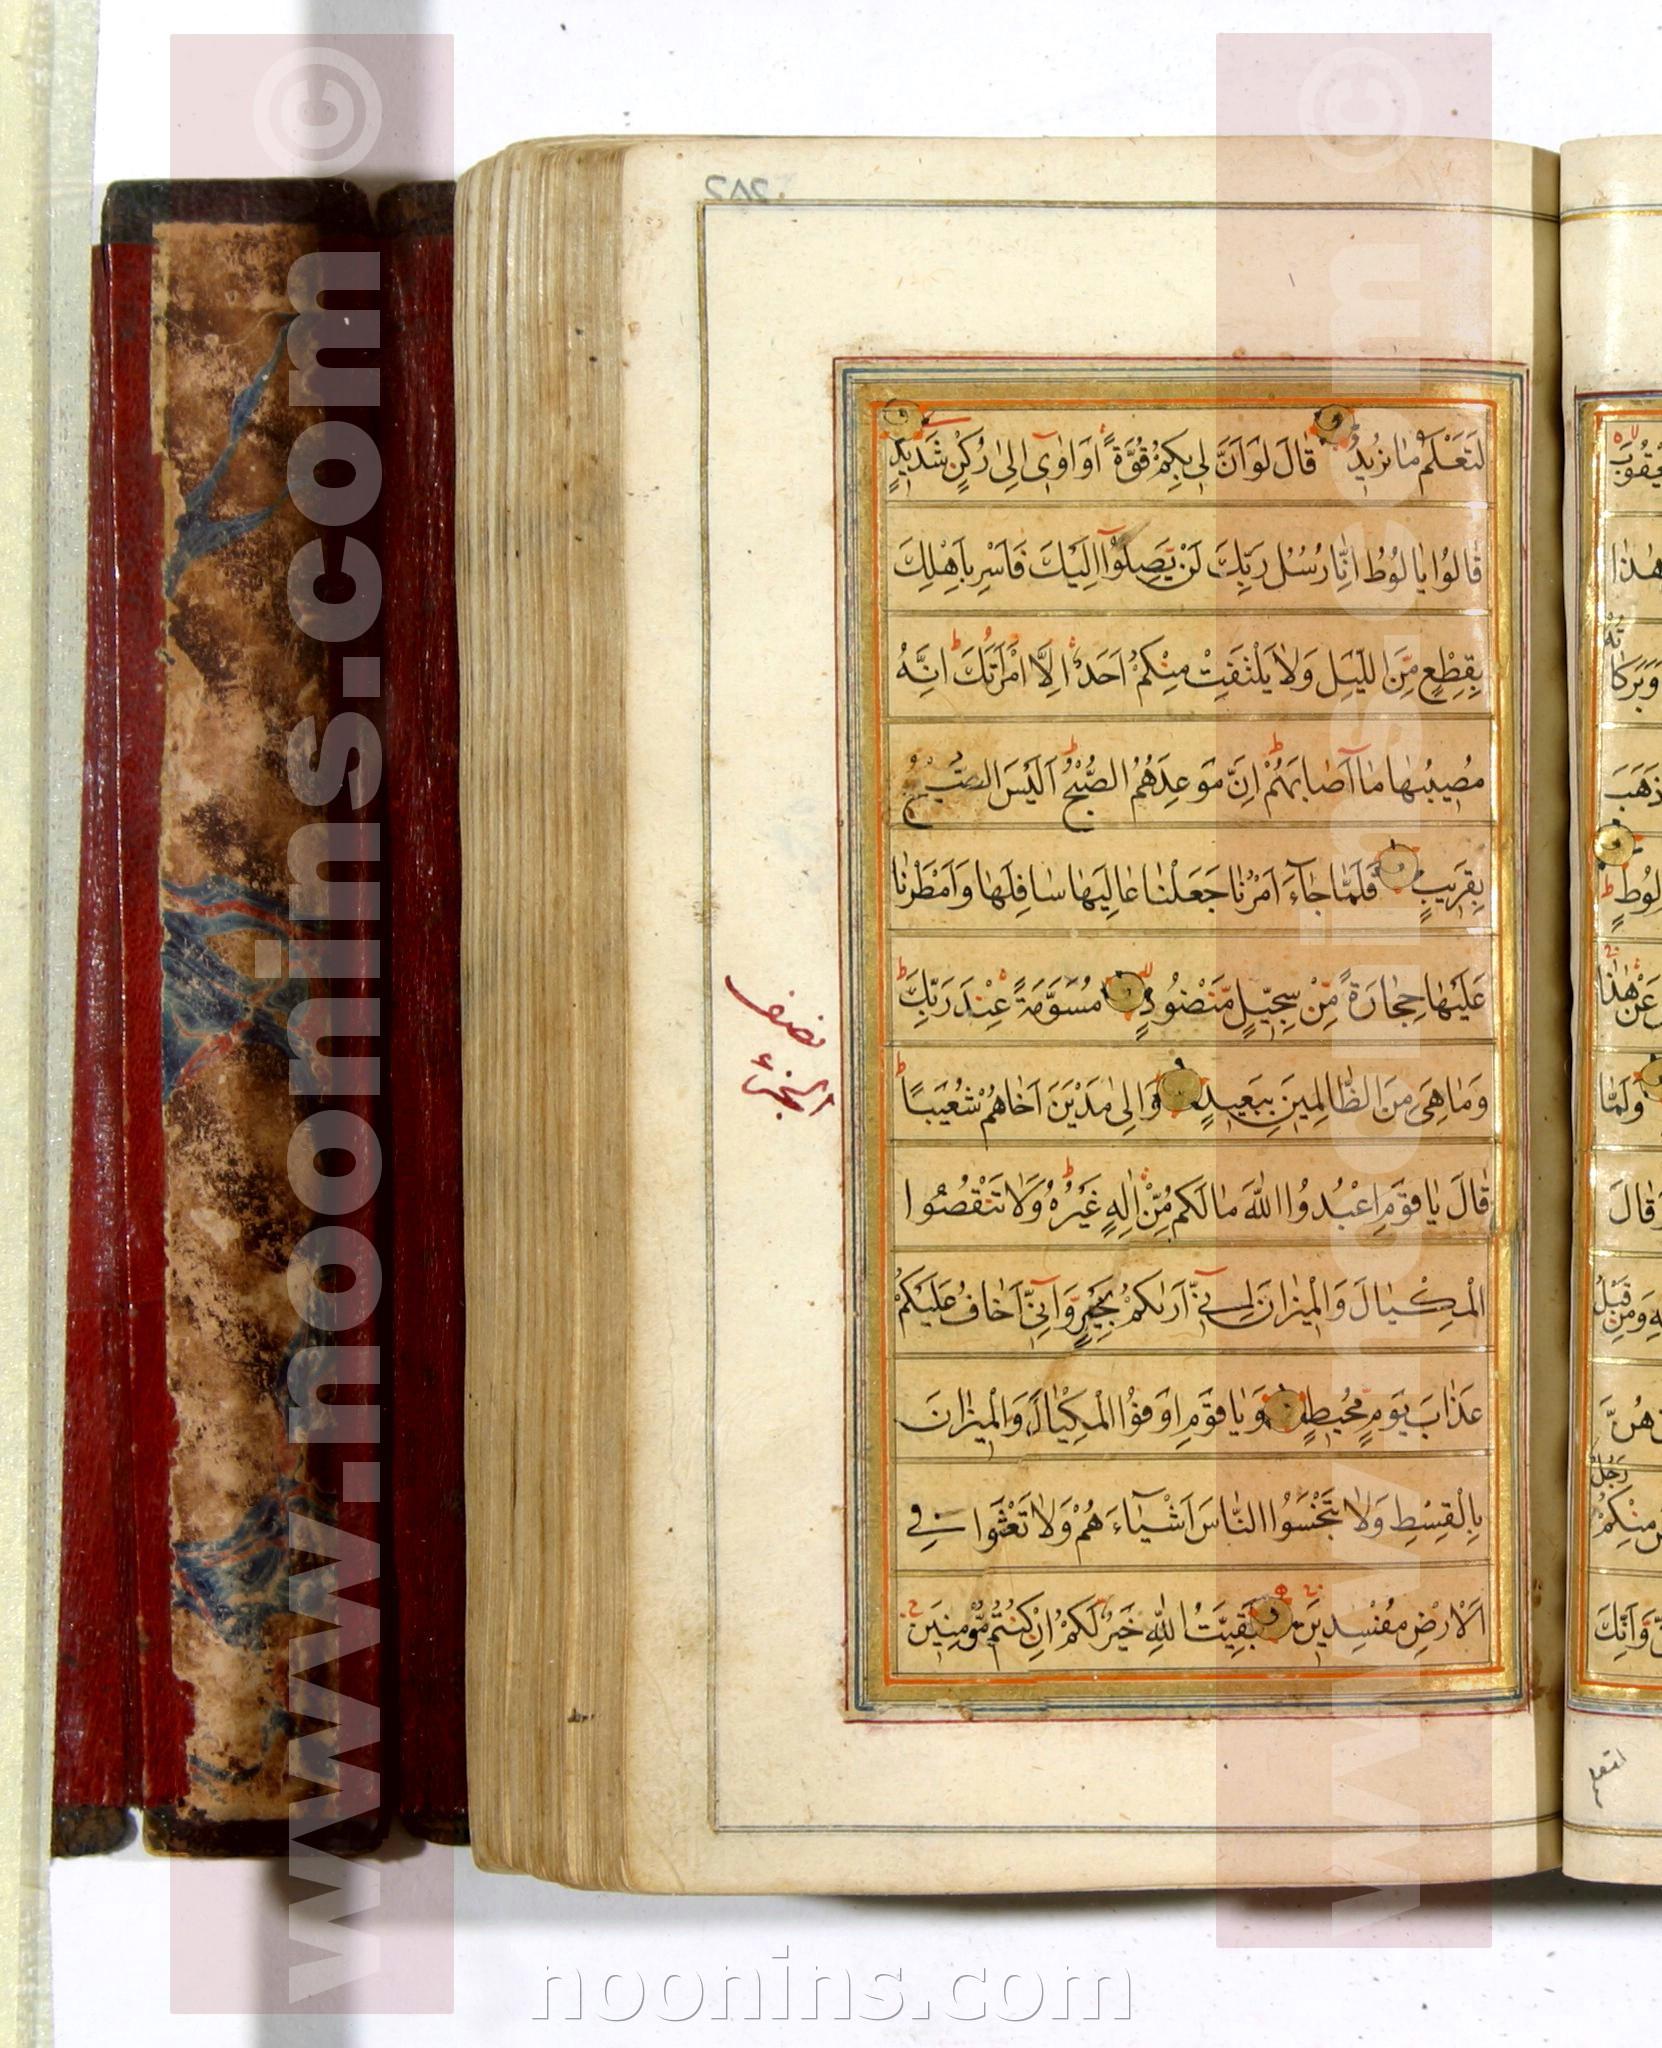 لَتَعْلَمُ مٰا نُرٖيدُ قٰالَ لَوْ اَنَّ لٖى بِكُمْ قُوَّةً اَوْ اٰوٖىٓ اِلٰى رُكْنٍ شَدٖيدٍ
قٰالُوا يٰا لُوطُ اِنّٰا رُسُلُ رَبِّكَ لَنْ يَصِلُوٓا اِلَيْكَ فَاَسْرِ بِاَهْلِكَ
بِقِطْعٍ مِّنَ الَّيْلِ وَلٰا يَلْتَفِتْ مِنْكُمْ اَحَدٌ اِلَّا امْرَاَتَكَ اِنَّهُ
مُصٖيبُهٰا مٰٓا اَصٰابَهُمْ اِنَّ مَوْعِدَهُمُ الصُّبْحُ اَلَيْسَ الصُّبْحُ
بِقَرٖيبٍ فَلَمّٰا جٰٓاءَ اَمْرُنٰا جَعَلْنٰا عٰالِيَهٰا سٰافِلَهٰا وَاَمْطَرْنٰا
عَلَيْهٰا حِجٰارَةً مِّنْ سِجّٖيلٍ مَّنْضُودٍ مُسَوَّمَةً عِنْدَ رَبِّكَ
وَمٰا هِىَ مِنَ الظّٰالِمٖينَ بِبَعٖيدٍ وَاِلٰى مَدْيَنَ اَخٰاهُمْ شُعَيْبًا
قٰالَ يٰا قَوْمِ اعْبُدُوا اللّٰهَ مٰا لَكُمْ مِّنْ اِلٰهٍ غَيْرُهُ وَلٰا تَنْقُصُوا
الْمِكْيٰالَ وَالْمٖيزٰانَ اِنّٖىٓ اَرٰىكُمْ بِخَيْرٍ وَّاِنّٖىٓ اَخٰافُ عَلَيْكُمْ
عَذٰابَ يَوْمٍ مُّحٖيطٍ وَيٰا قَوْمِ اَوْفُوا الْمِكْيٰالَ وَالْمٖيزٰانَ
بِالْقِسْطِ وَلٰا تَبْخَسُوا النّٰاسَ اَشْيٰٓاءَهُمْ وَلٰا تَعْثَوْا فِى
الْاَرْضِ مُفْسِدٖينَ بَقِيَّتُ اللّٰهِ خَيْرٌ لَّكُمْ اِنْ كُنْتُمْ مُّؤْمِنٖينَ
نصف
الجزء
يعقوب
هٰذا
وبركاته
ذهب
لوط
عن هٰذا
ولمّا
وقال
ومن قبل
هنّ
رجل
منكم
وانّك
لتعلم
www.noonins.com ©
www.noonins.com ©
noonins.com